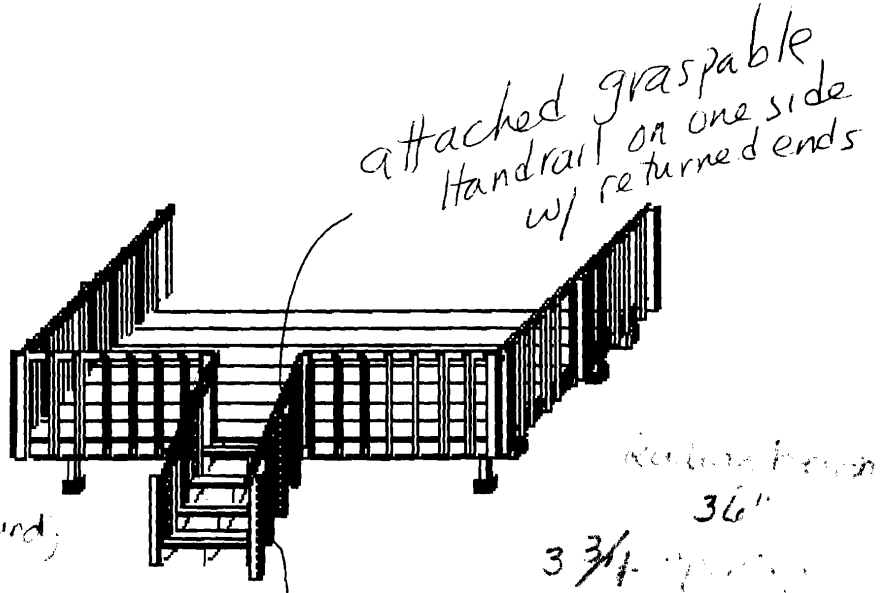 attached graspable
Handrail on one side
w/ returned ends
36"
3 3/4